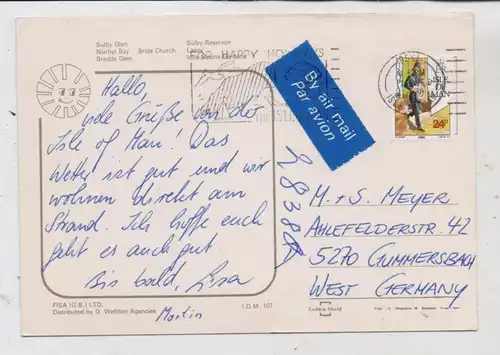 Sulby Glen
Niarbyl Bay Bride Church
Bradda Glen
Sulby Reservoir
Laxey
FOR HAPPY HOLIDAYS
By air mail
Par avion
ISLE
OF
MAN
24p
Hallo,
viele Grüße von der
Isle of Man. Das
Wetter ist gut und wir
wohnen direkt am
Strand. Ich hoffe euch
geht es auch gut.
Bis bald, Lisa
Martin
M. + S. MEYER
AHLEFELDERSTR. 42
5270 GUMMERSBACH
WEST GERMANY
FISA (G.B.) LTD.
Distributed by D. Wellton Agencies
I.O.M. 107